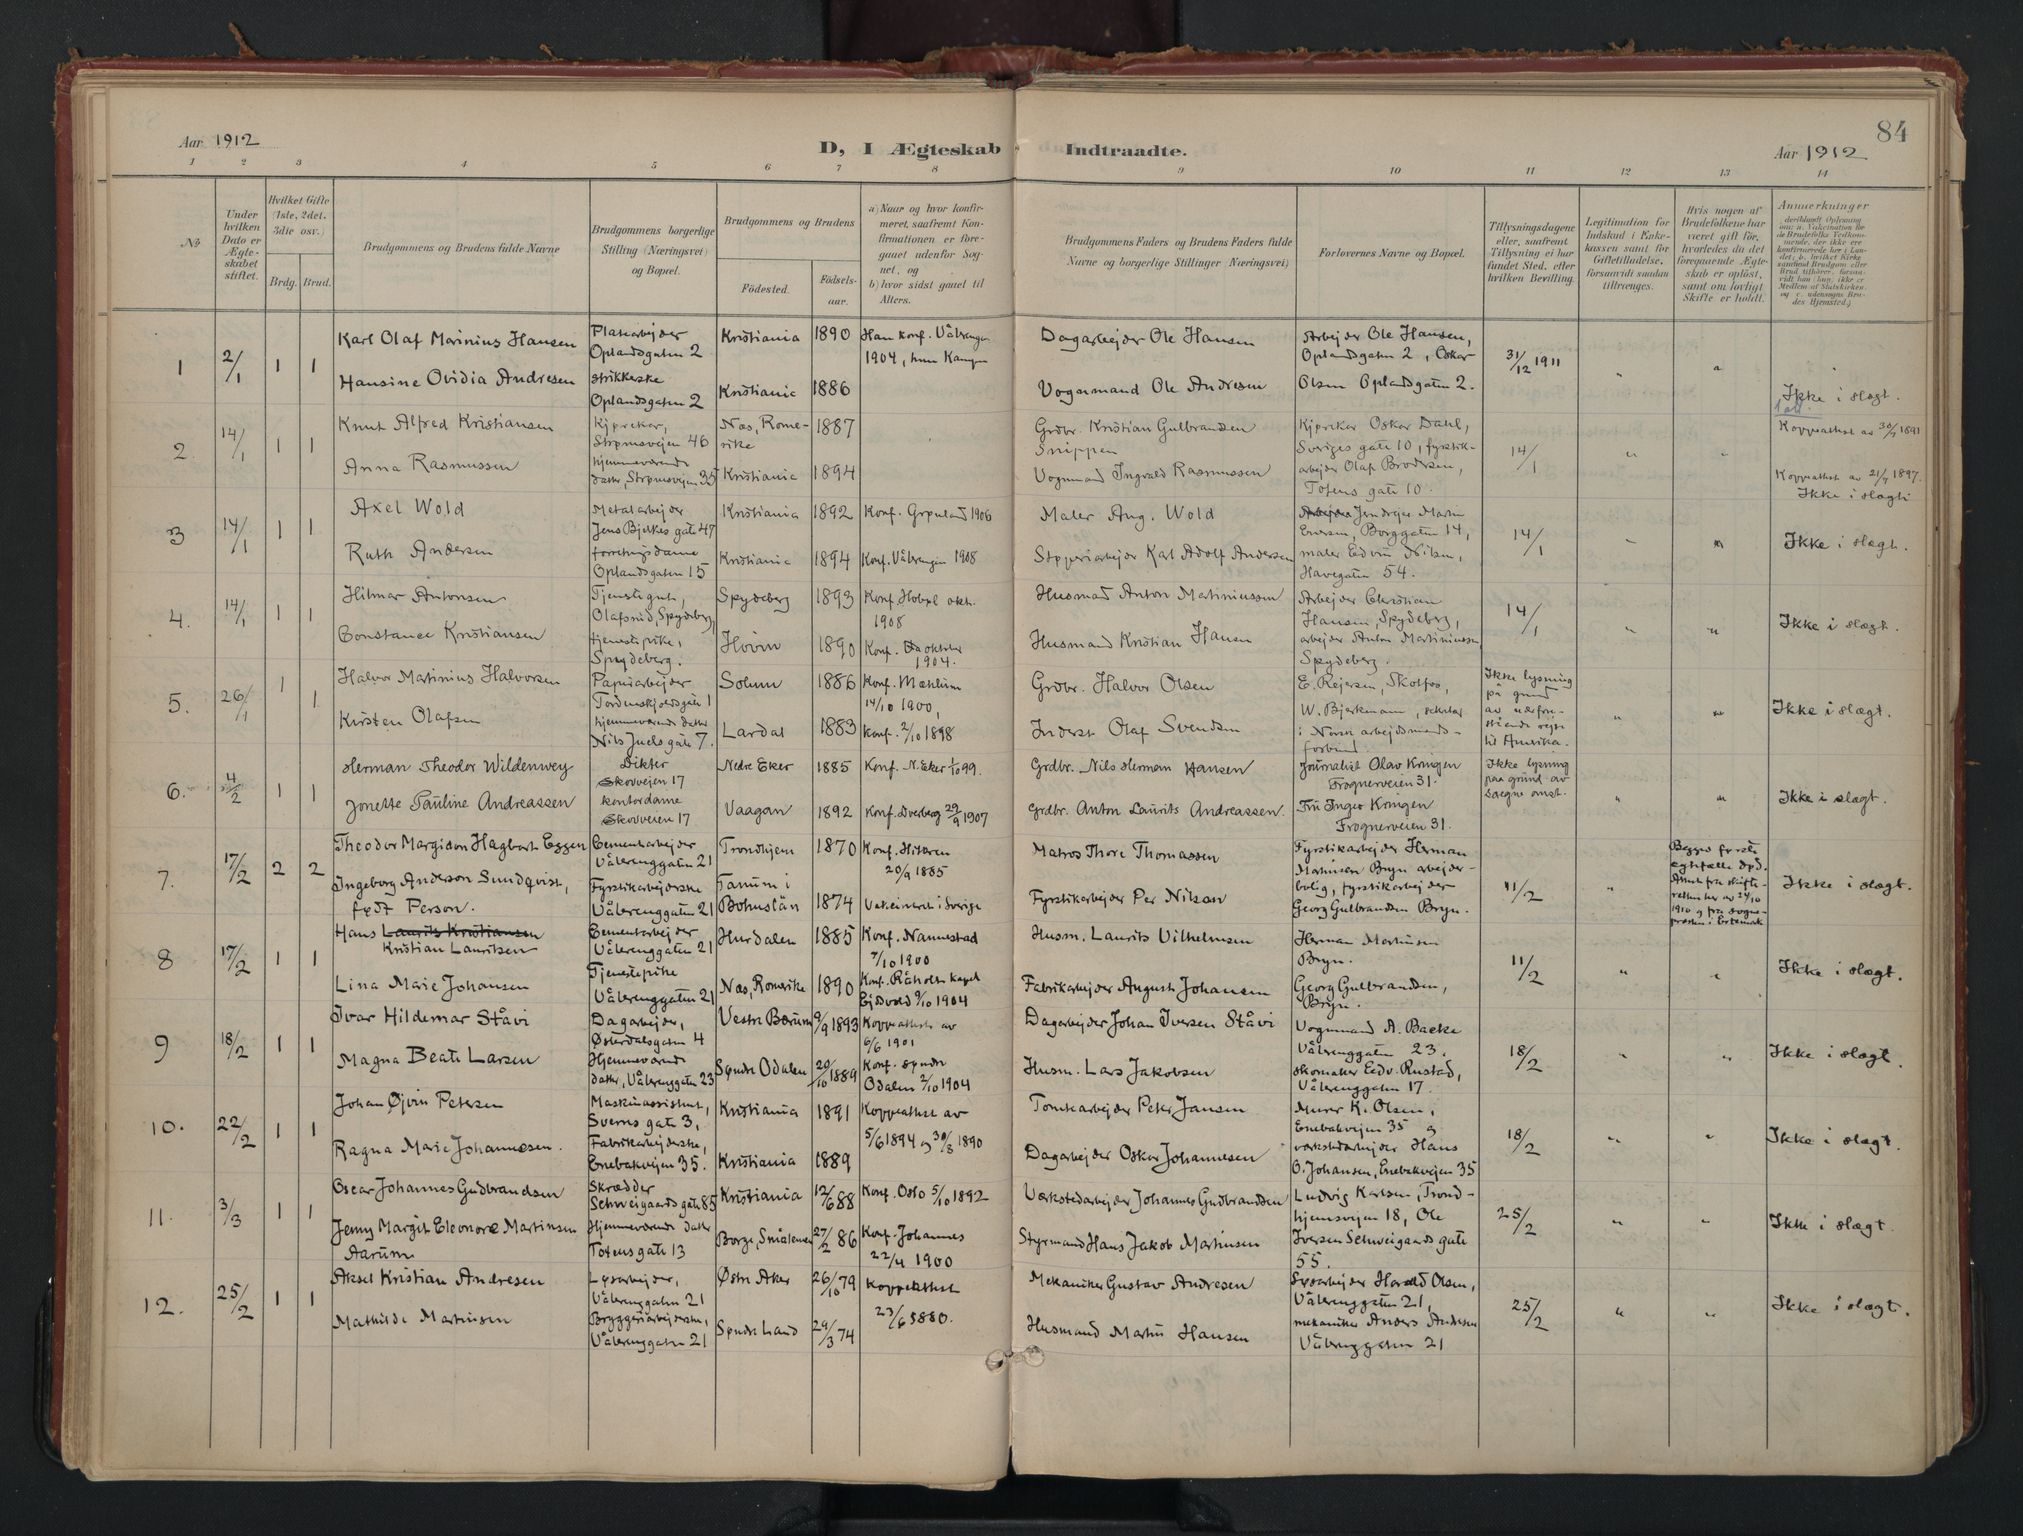 84
Aar 1912
D, I Ægteskab Indtraadte.
Aar 1912
1 2 3 4 5 6 7 8 9 10 11 12 13 14
No
Under hvilken Dato er Ægteskabet stiftet.
Hvilket Gifte (1ste, 2det, 3die osv.)
Brdg. Brud.
Brudgommens og Brudens fulde Navne
Brudgommens borgerlige Stilling (Næringsvei) og Bopæl.
Brudgommens og Brudens
Fødested.
Fødselsaar.
a) Naar og hvor konfirmeret, saafremt Konfirmationen er foregaaet udenfor Sognet, og
b) hvor sidst gaaet til Alters.
Brudgommens Faders og Brudens Faders fulde Navne og borgerlige Stillinger (Næringsvei)
Forlovernes Navne og Bopæl.
Tillysningsdagene eller, saafremt Tillysning ei har fundet Sted, efter hvilken Bevilling.
Legitimation for Indskud i Enkekassen samt for Giftetilladelse, forsaavidt saadan tiltrænges.
Hvis nogen af Brudefolkene har været gift før, hvorledes da det foregaaende Ægteskab er opløst, samt om lovligt Skifte er holdt.
Anmærkninger
1 2/1 1 1 Karl Olaf Marinius Hansen Platearbejder Oplandsgaten 2 Kristiania 1890 Han konf. Vålerengen 1904, hun Kampen Dagarbejder Ole Hansen Arbejder Ole Hansen, Oplandsgaten 2, Oskar Olsen Oplandsgaten 2. 31/12 1911
Hansine Ovidia Andresen Strikkerske Oplandsgaten 2 Kristiania 1886 Vognmand Ole Andresen Ikke i slægt.
2. 14/1 1 1 Knut Alfred Kristiansen Kjørekar, Strømsveien 46 Næs, Romerike 1887 Grdbr. Kristian Gulbrandsen Snippen Kjørekar Oskar Dahl, Sveriges gate 10, fyrstikarbejder Olaf Brodersen, Totens gate 10. 14/1 Koppeattest av 30/7 1891
Anna Rasmussen hjemmeværende datter, Strømsveien 35 Kristiania 1894 Vognmand Ingvald Rasmussen Koppeattest av 21/7 1897. Ikke i slægt
3 14/1 1 1 Axel Wold Metalarbejder Jens Bjelkes gate 47 Kristiania 1892 Konf. Grønland 1906 Maler Aug. Wold Jendrejer Martin Enersen, Borggaten 14, maler Edvin Nilsen, Havegaten 54. 14/1 Ikke i slægt.
Ruth Andersen forretningsdame Oplandsgaten 15 Kristiania 1894 Konf. Vålerengen 1908 Støperiarbejder Karl Adolf Andersen
4. 14/1 1 1 Hilmar Antonsen Tjenestegut, Olafsrud, Spydeberg, Spydeberg 1893 Konf. Hobøl okt. 1908 Husmand Anton Martiniussen Arbejder Christian Hansen, Spydeberg, arbejder Anton Martiniussen Spydeberg. 14/1 Ikke i slægt.
Constance Kristiansen tjenestepike, Spydeberg. Hovin 1890 Konf. oktober 1904. Husmand Kristian Hansen
5. 26/1 1 1 Halvor Martinius Halvorsen Papirarbejder Tordenskjoldsgate 1 Solum 1886 Konf. Mælum 14/10 1900, Grdbr. Halvor Olsen E. Rejersen, Skotfos, W. Bjerkmann, sekretær i Norsk arbejdsmandsforbund. Ikke lysning på grund av nær forestående rejse til Amerika. Ikke i slægt.
Kirsten Olafsen hjemmeværende datter Nils Juels gate 7. Lardal 1883 Konf. 2/10 1898 Inderst Olaf Svendsen
6. 4/2 1 1 Herman Theodor Wildenwey Dikter Skovveien 17 Nedre Eker 1885 Konf. N. Eker 1/10 99. Grdbr. Nils Herman Hansen Journalist Olav Kringen Frognerveien 31. Ikke lysning paa grund av Ikke i slægt.
Jonette Pauline Andreassen kontordame Skovveien 17 Vaagan 1892 Konf. Dverberg 29/9 1907 Grdbr. Anton Laurits Andreassen. Fru Inger Kringen Frognerveien 31.
7. 17/2 2 2 Theodor Margidon Hagbart Eggen Cementarbejder Vålerenggaten 21 Trondhjem 1870 Konf. Hitteren 20/9 1885 Matros Thore Thomassen Fyrstikarbejder Herman Martinsen Bryn arbejderbolig, fyrstikarbejder Georg Gulbrandsen Bryn. 11/2 Begges første egtefælle død. Ikke i slægt.
Ingeborg Anderson Sundqvist, født Person. Fyrstikarbejderske Vålerenggaten 21 Tanum i Bohuslän 1874 Vaksinert i Sverige Fyrstikarbejder Per Nilson
8 17/2 1 1 Hans Laurits Kristiansen Kristian Lauritsen Cementarbejder Vålerenggaten 21 Hurdalen 1885 Konf. Nannestad 7/10 1900 Husm. Laurits Vilhelmsen Herman Martinsen Bryn. 11/2 Ikke i slægt.
Lina Marie Johansen Tjenestepike Vålerenggaten 21 Næs, Romerike 1890 Konf. Råholt kapel Ejdsvold 9/10 1904 Fabrikarbejder August Johansen Georg Gulbrandsen, Bryn.
9 18/2 1 1 Ivar Hildemar Ståvi Dagarbejder, Østerdalsgaten 4 Vestre Bærum 9/9 1893 Koppeattest av 6/6 1901 Dagarbejder Johan Iversen Ståvi Vognmand A. Bakke Vålerenggaten 23. 18/2 Ikke i slægt
Magna Beate Larsen Hjemmeværende datter, Vålerenggaten 23 Søndre Odalen 20/10 1889 Konf. søndre Odalen 2/10 1904 Husm. Lars Jakobsen skomaker Edv. Rustad, Vålerenggaten 17.
10. 22/2 1 1 Johan Øjvin Petersen Maskinassistent, Sverres gate 3, Kristiania 1891 Koppeattest av 5/6 1894 og 30/8 1890 Tomtearbejder Peter Jansen Murer K. Olsen, Enebakvejen 35 og værkstedarbejder Hans O. Johansen, Enebakvejen 35 18/2 Ikke i slægt.
Ragna Marie Johannesen. Fabrikarbejderske, Enebakvejen 35. Kristiania 1889 Dagarbejder Oskar Johannesen
11. 3/3 1 1 Oscar Johannes Gudbrandsen Skrædder Schweigaards gate 85 Kristiania 12/6 88 Konf. Oslo 5/10 1892 Værkstedarbejder Johannes Gudbrandsen Ludvig Karlsen, Trondhjemsvejen 18, Ole Iversen Schweigaards gate 55. 25/2 Ikke i slægt.
Jenny Margit Eleonore Martinsen Aarum Hjemmeværende datter Totens gate 13 Borge, Smålenene 27/2 86 Konf. Johannes 22/4 1900 Styrmand Hans Jakob Martinsen
12. 25/2 1 1 Aksel Kristian Andresen Lysarbejder, Vålerenggaten 21 Østre Aker 26/10 79 Koppeattest 23/6 1880. Mekaniker Gustav Andresen Harald Olsen, Vålerenggaten 21, mekaniker Anders Andresen Vålerenggaten 21 25/2 Ikke i slægt.
Mathilde Martinsen Bryggeriarbejderske, Vålerenggaten 21 Søndre Land 29/3 74 Husmand Martin Hansen